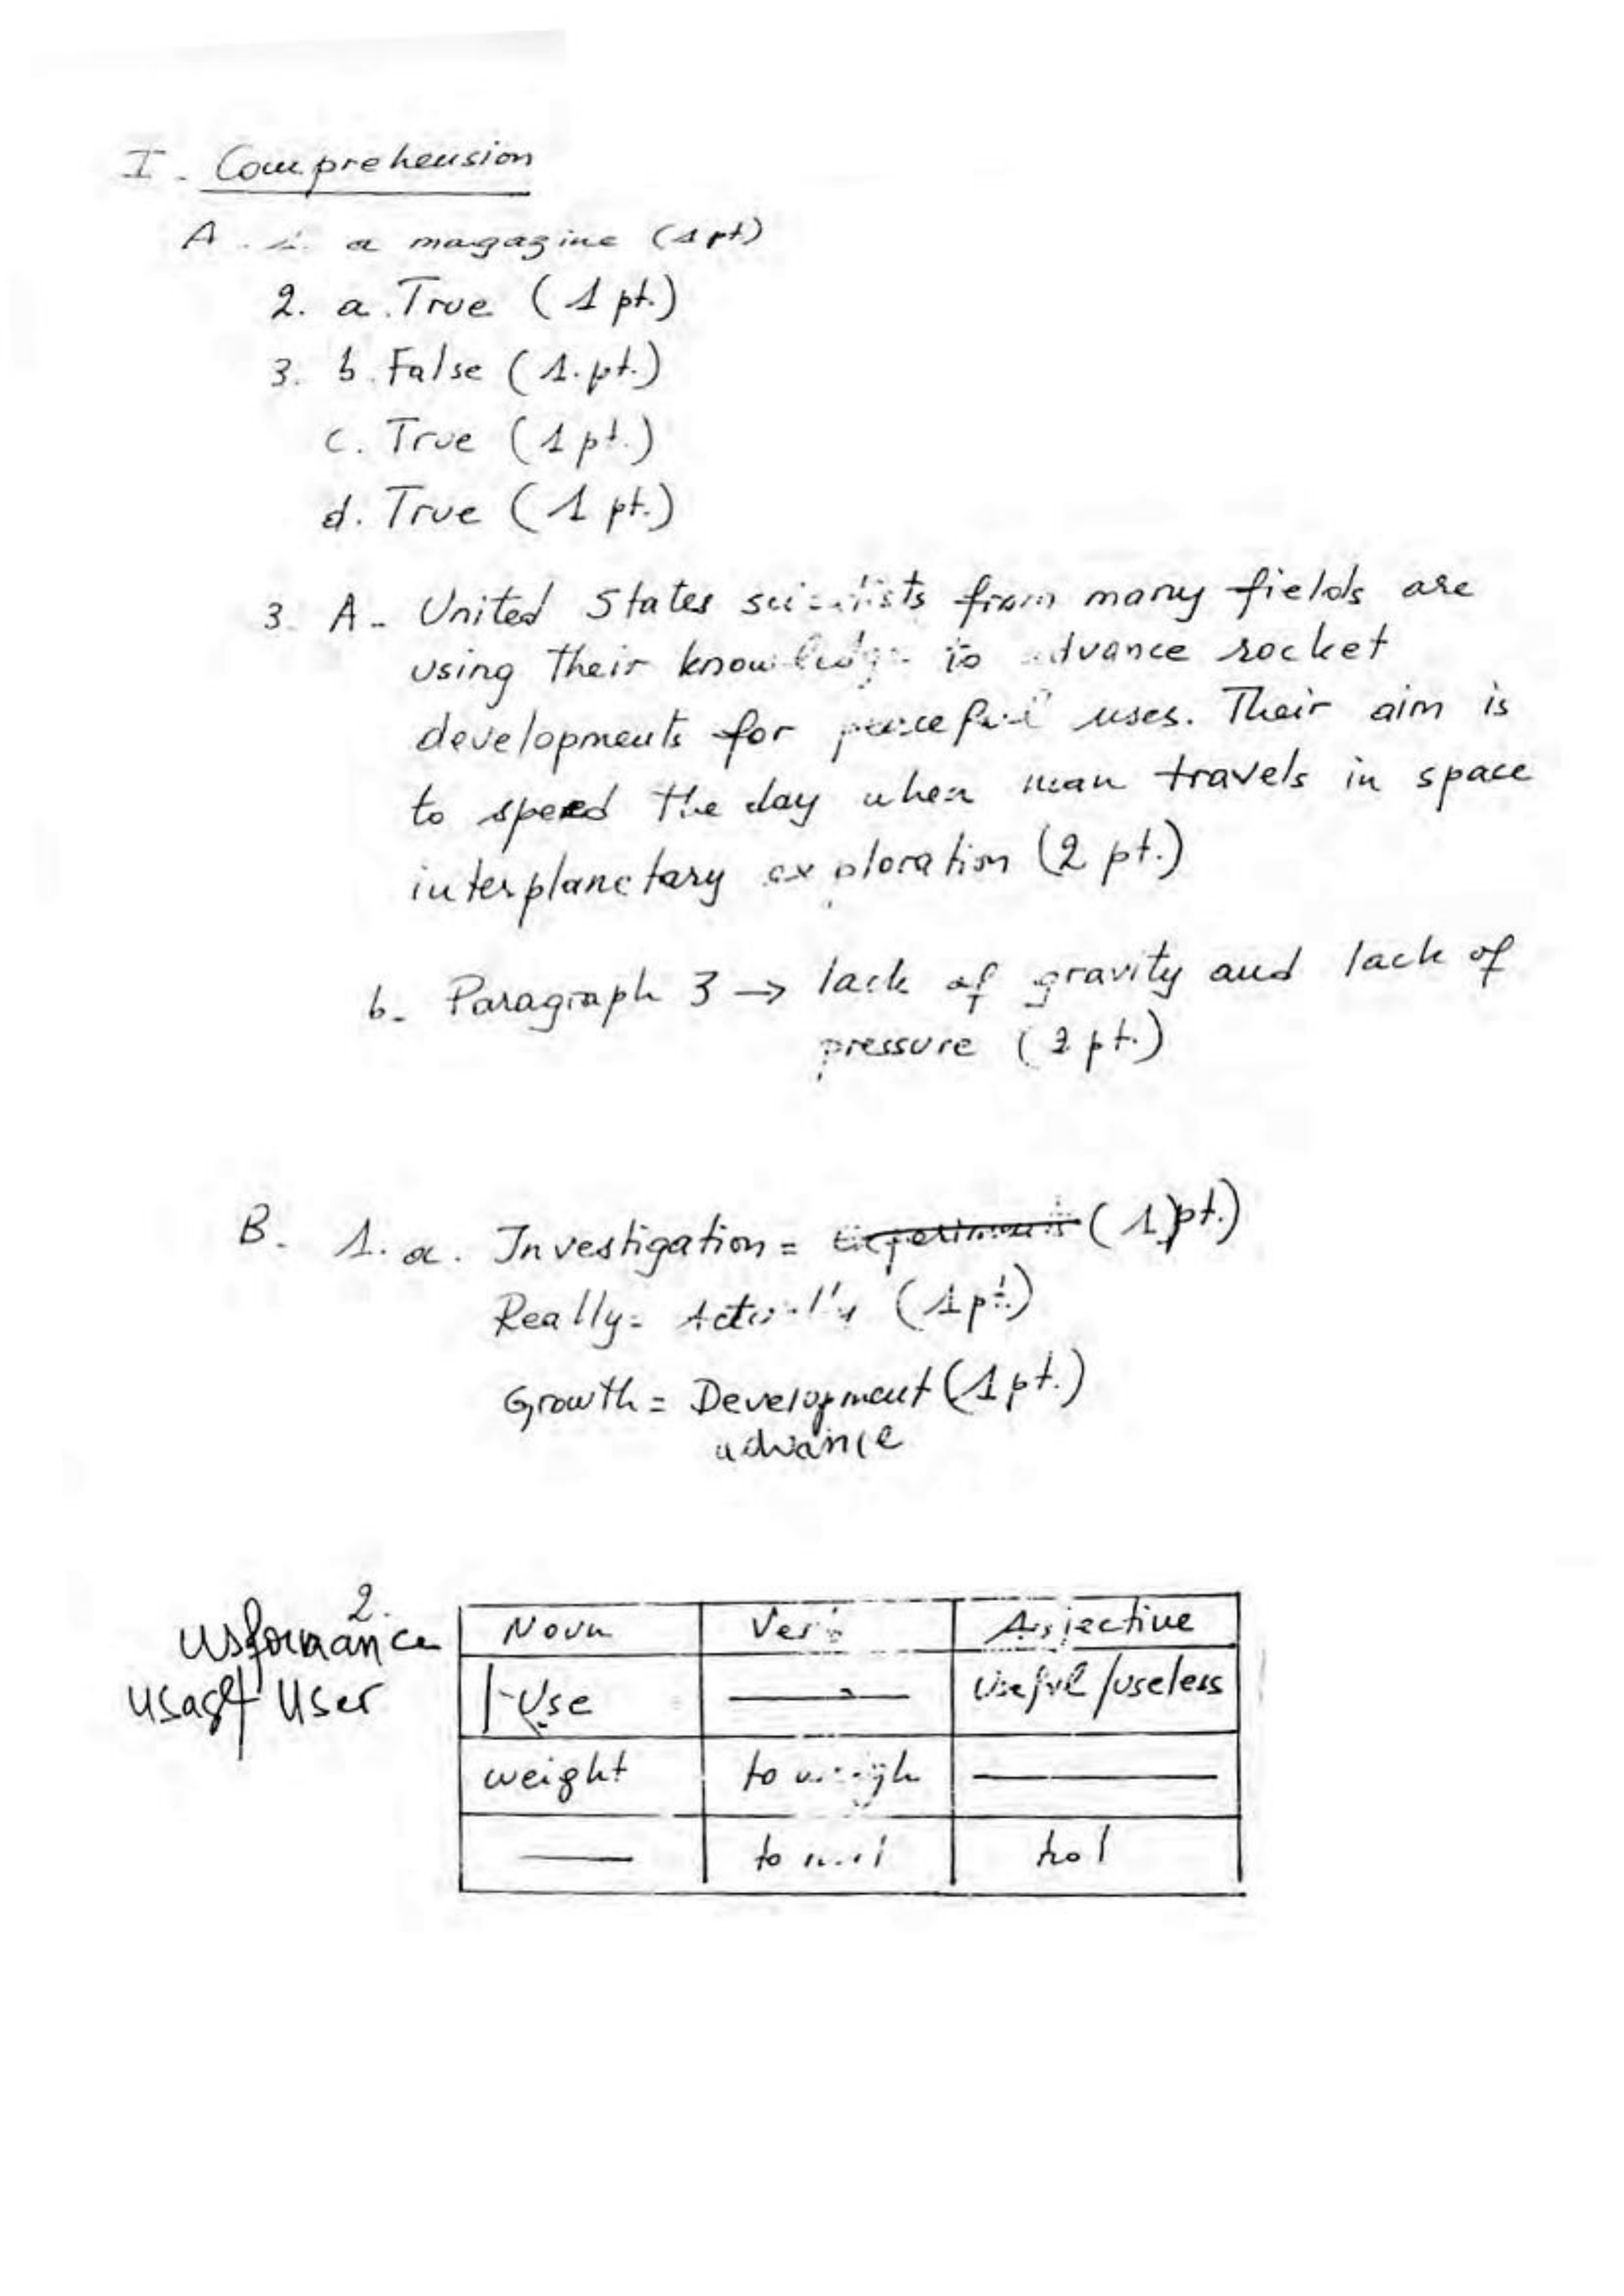 I. Comprehension
A. 1. a magazine (1 pt)
2. a. True (1 pt.)
3. b. False (1. pt.)
c. True (1 pt.)
d. True (1 pt.)
3. A- United States scientists from many fields are
using their knowledge to advance rocket
developments for peaceful uses. Their aim is
to speed the day when man travels in space
interplanetary exploration (2 pt.)
b- Paragraph 3 → lack of gravity and lack of
pressure (2 pt.)
B. 1. a. Investigation = (1) pt.)
Really = Actually (1 pt.)
Growth = Development (1 pt.)
advance
2.
Noun Verb Adjective
usage/ User
Use useful/useless
weight to weigh
to